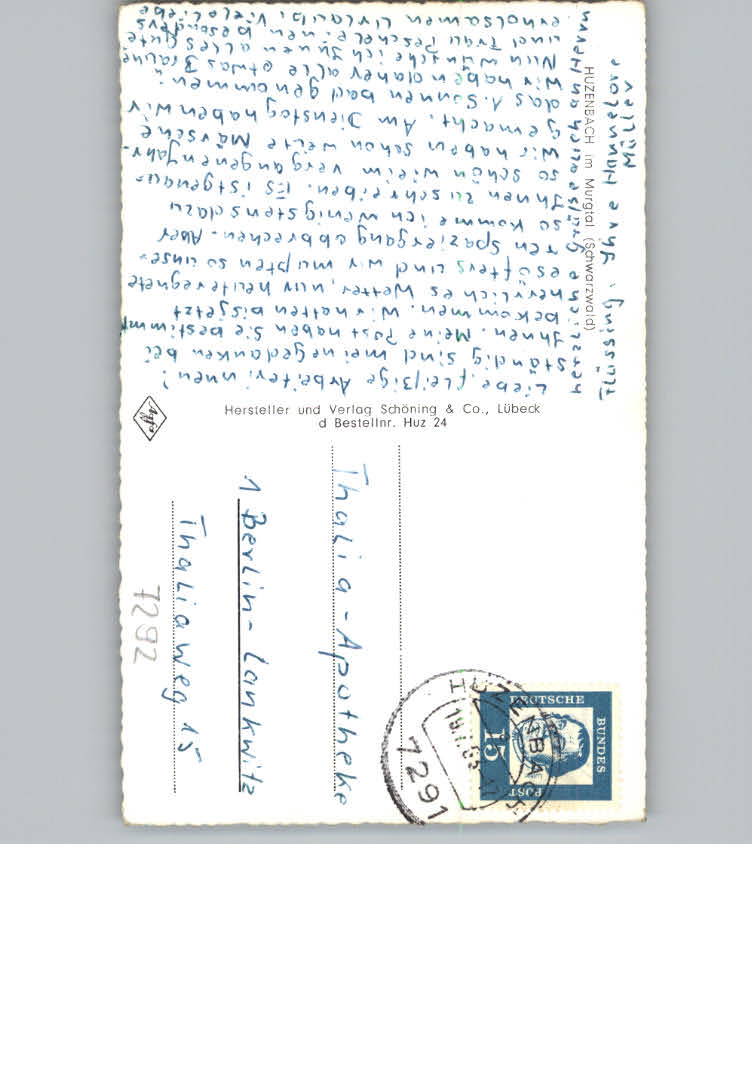 Liebe fleißige Arbeiterinnen!
Ständig sind meine gedanken bei
Ihnen. Meine Post haben Sie bestimmt
bekommen. Wir hatten bis jetzt
herrliches Wetter, nur heute regnete
es öfters und wir mußten so unse-
ren Spaziergang abbrechen. Aber
so komme ich wenigstens dazu
Ihnen zu schreiben. Es ist genau-
so schön wie im vergangenen Jahr.
Wir haben schon weite Märsche
gemacht. Am Dienstag haben wir
das 1. Sonnenbad genommen.
Wir haben daher alle etwas Bräune
Nun wünsche ich Ihnen alles gute
und Frau Peschel einen besonders
erholsamen Urlaub. Viele liebe
herzliche Grüße auch an Herrn
Flüssing, Ihre Hannelore
Müller
HUZENBACH im Murgtal (Schwarzwald)
Hersteller und Verlag Schöning & Co., Lübeck
d Bestellnr. Huz 24
Thalia-Apotheke
1 Berlin-Lankwitz
Thaliaweg 15
7292
HUZENBACH
7291
DEUTSCHE
BUNDES
POST
15